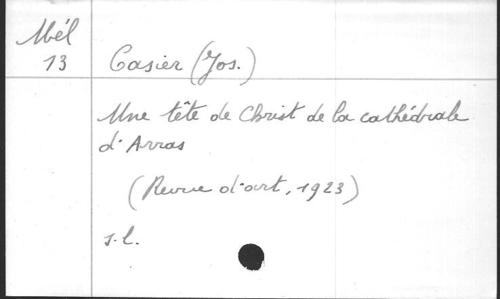 Mél
13
Casier (Jos.)
Une tête de Christ de la cathédrale
d'Arras
(Revue d'art, 1923)
s.l.